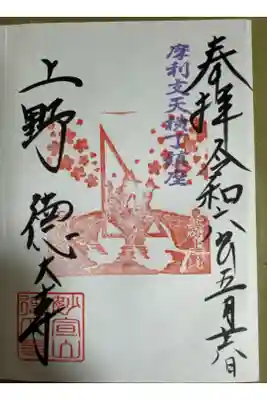 奉拝 令和六年五月十六日
摩利支天横丁鎮座
上野 徳大寺
妙宣山
徳大寺